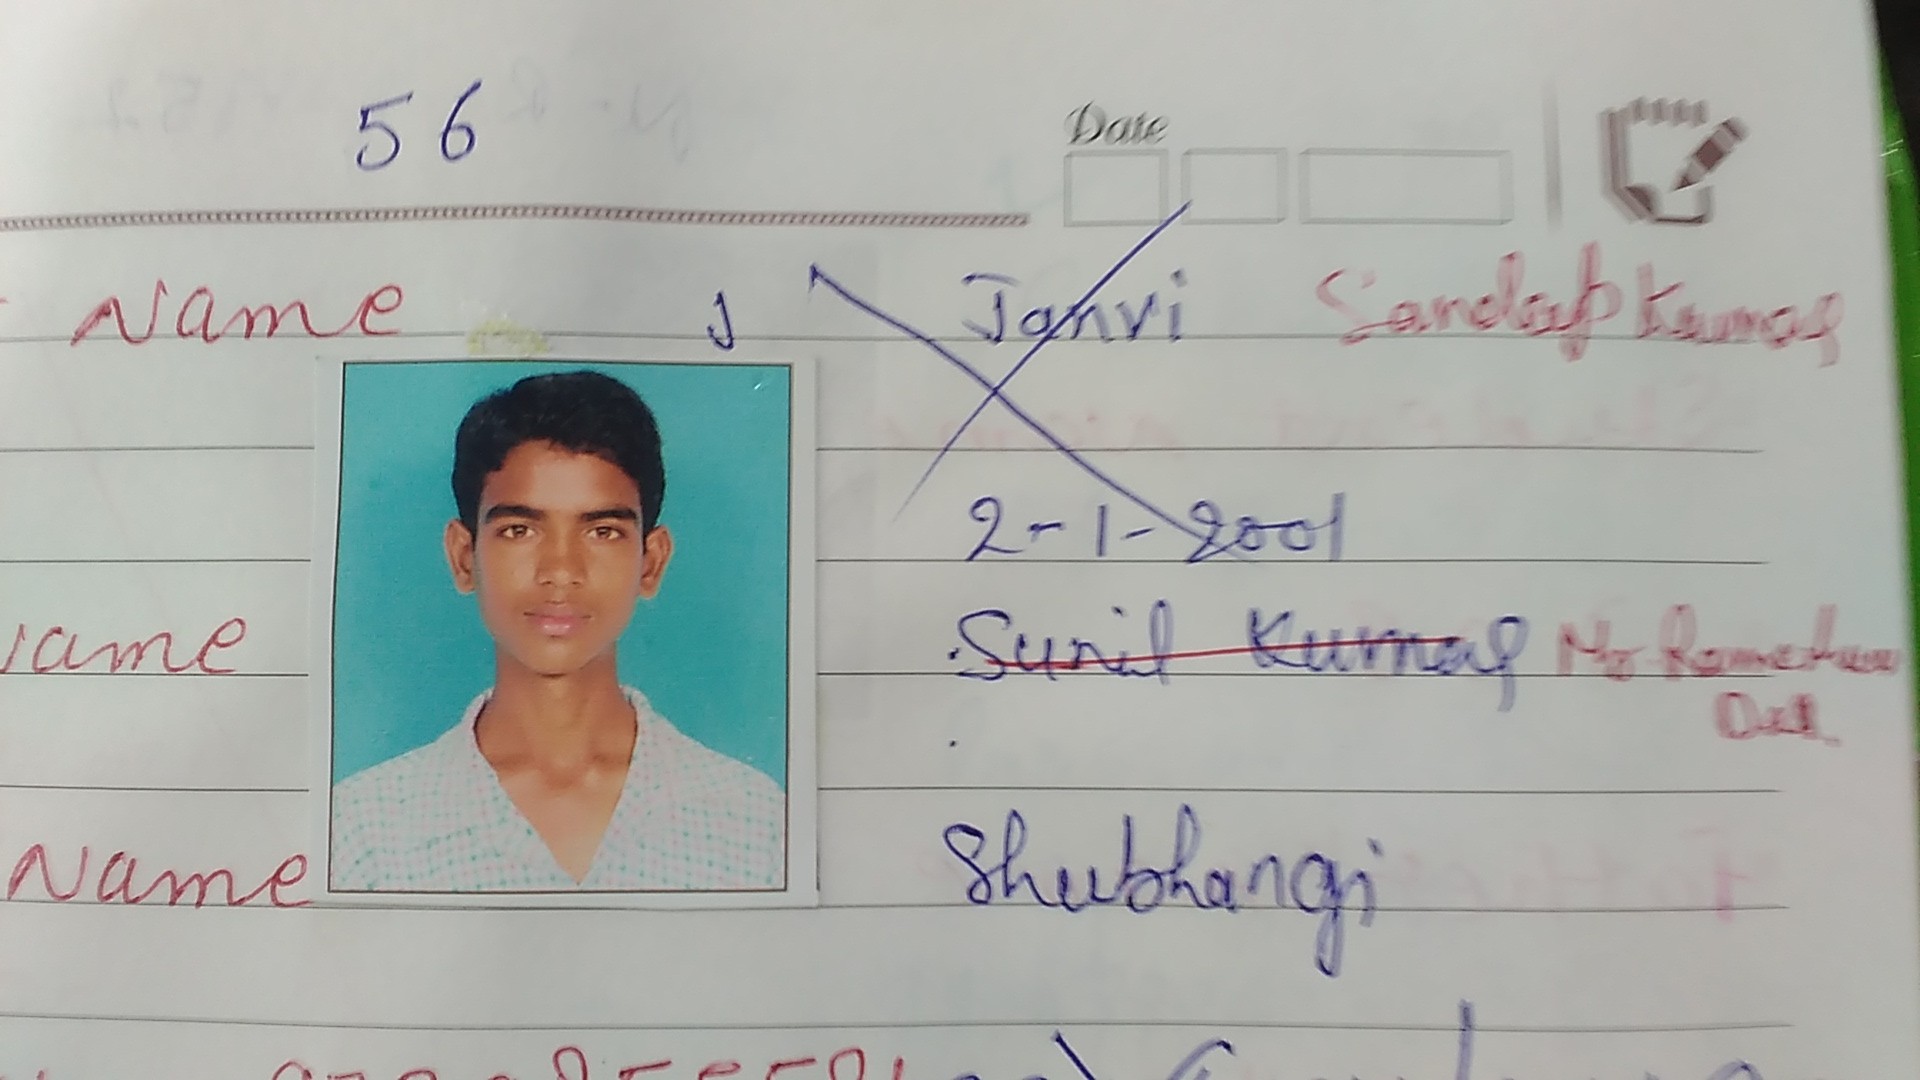 56
Date
Name J Janvi Sandeep Kumar
2-1-2001
Name Sunil Kumar Mr Rameshwar
Name Shubhangi